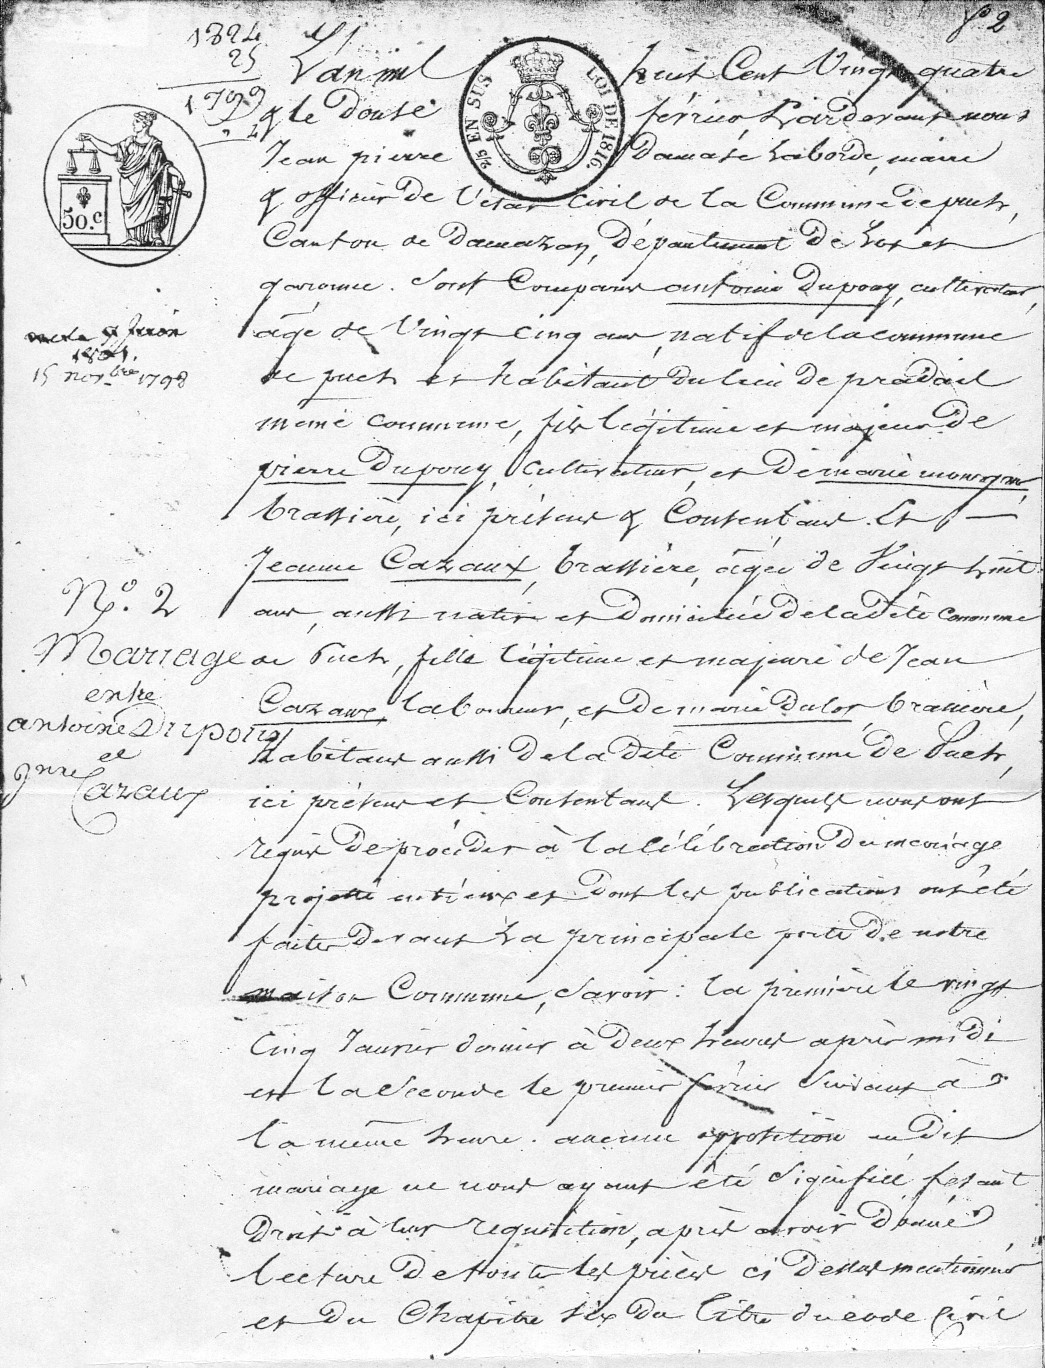 f° 2
1824
25
1799
L'an mil huit Cent Vingt quatre
& le Douse février, Pardevant nous
Jean pierre Damase Laborde, maire
& officier De l'état Civil de la Commune de puch,
Canton de Damazan, Département De Lot et
garonne. Sont Comparus antoine Dupouy, cultivateur,
âgé de Vingt cinq ans, natif de la commune
de puch et habitant du lieu de pradail
meme commune, fils légitime et majeur De
pierre Dupouy, Cultivateur, et De marie
brassière, ici présens & Consentans. Et
Jeanne Cazaux, brassière, âgée de Vingt huit
ans, aussi native et Domiciliée De la Dite Commune
de Puch, fille légitime et majeure de Jean
Cazaux, laboureur, et De marie Dulor, brassière,
habitans aussi De la Dite Commune De Puch,
ici présens et Consentans. Lesquels nous ont
requis De procéder à la célébration Du mariage
projetté entr'eux et Dont les publications ont été
faites Devant La principale porte De notre
maison Commune, Savoir : la première le vingt
Cinq Janvier dernier à Deux heures après midi
et la Seconde le premier février Suivant à
la même heure. aucune opposition au Dit
mariage ne nous ayant été Signifiée, fesant
Droit à leur requisition, après avoir Donné
lecture De toutes les pièces ci Dessus mentionnées
et Du Chapitre six Du titre du code Civil
2/5 EN SUS
LOI DE 1816.
50.c
15 novbre 1798
N°. 2
Mariage
entre
antoine Dupouy
et
Jnne Cazaux